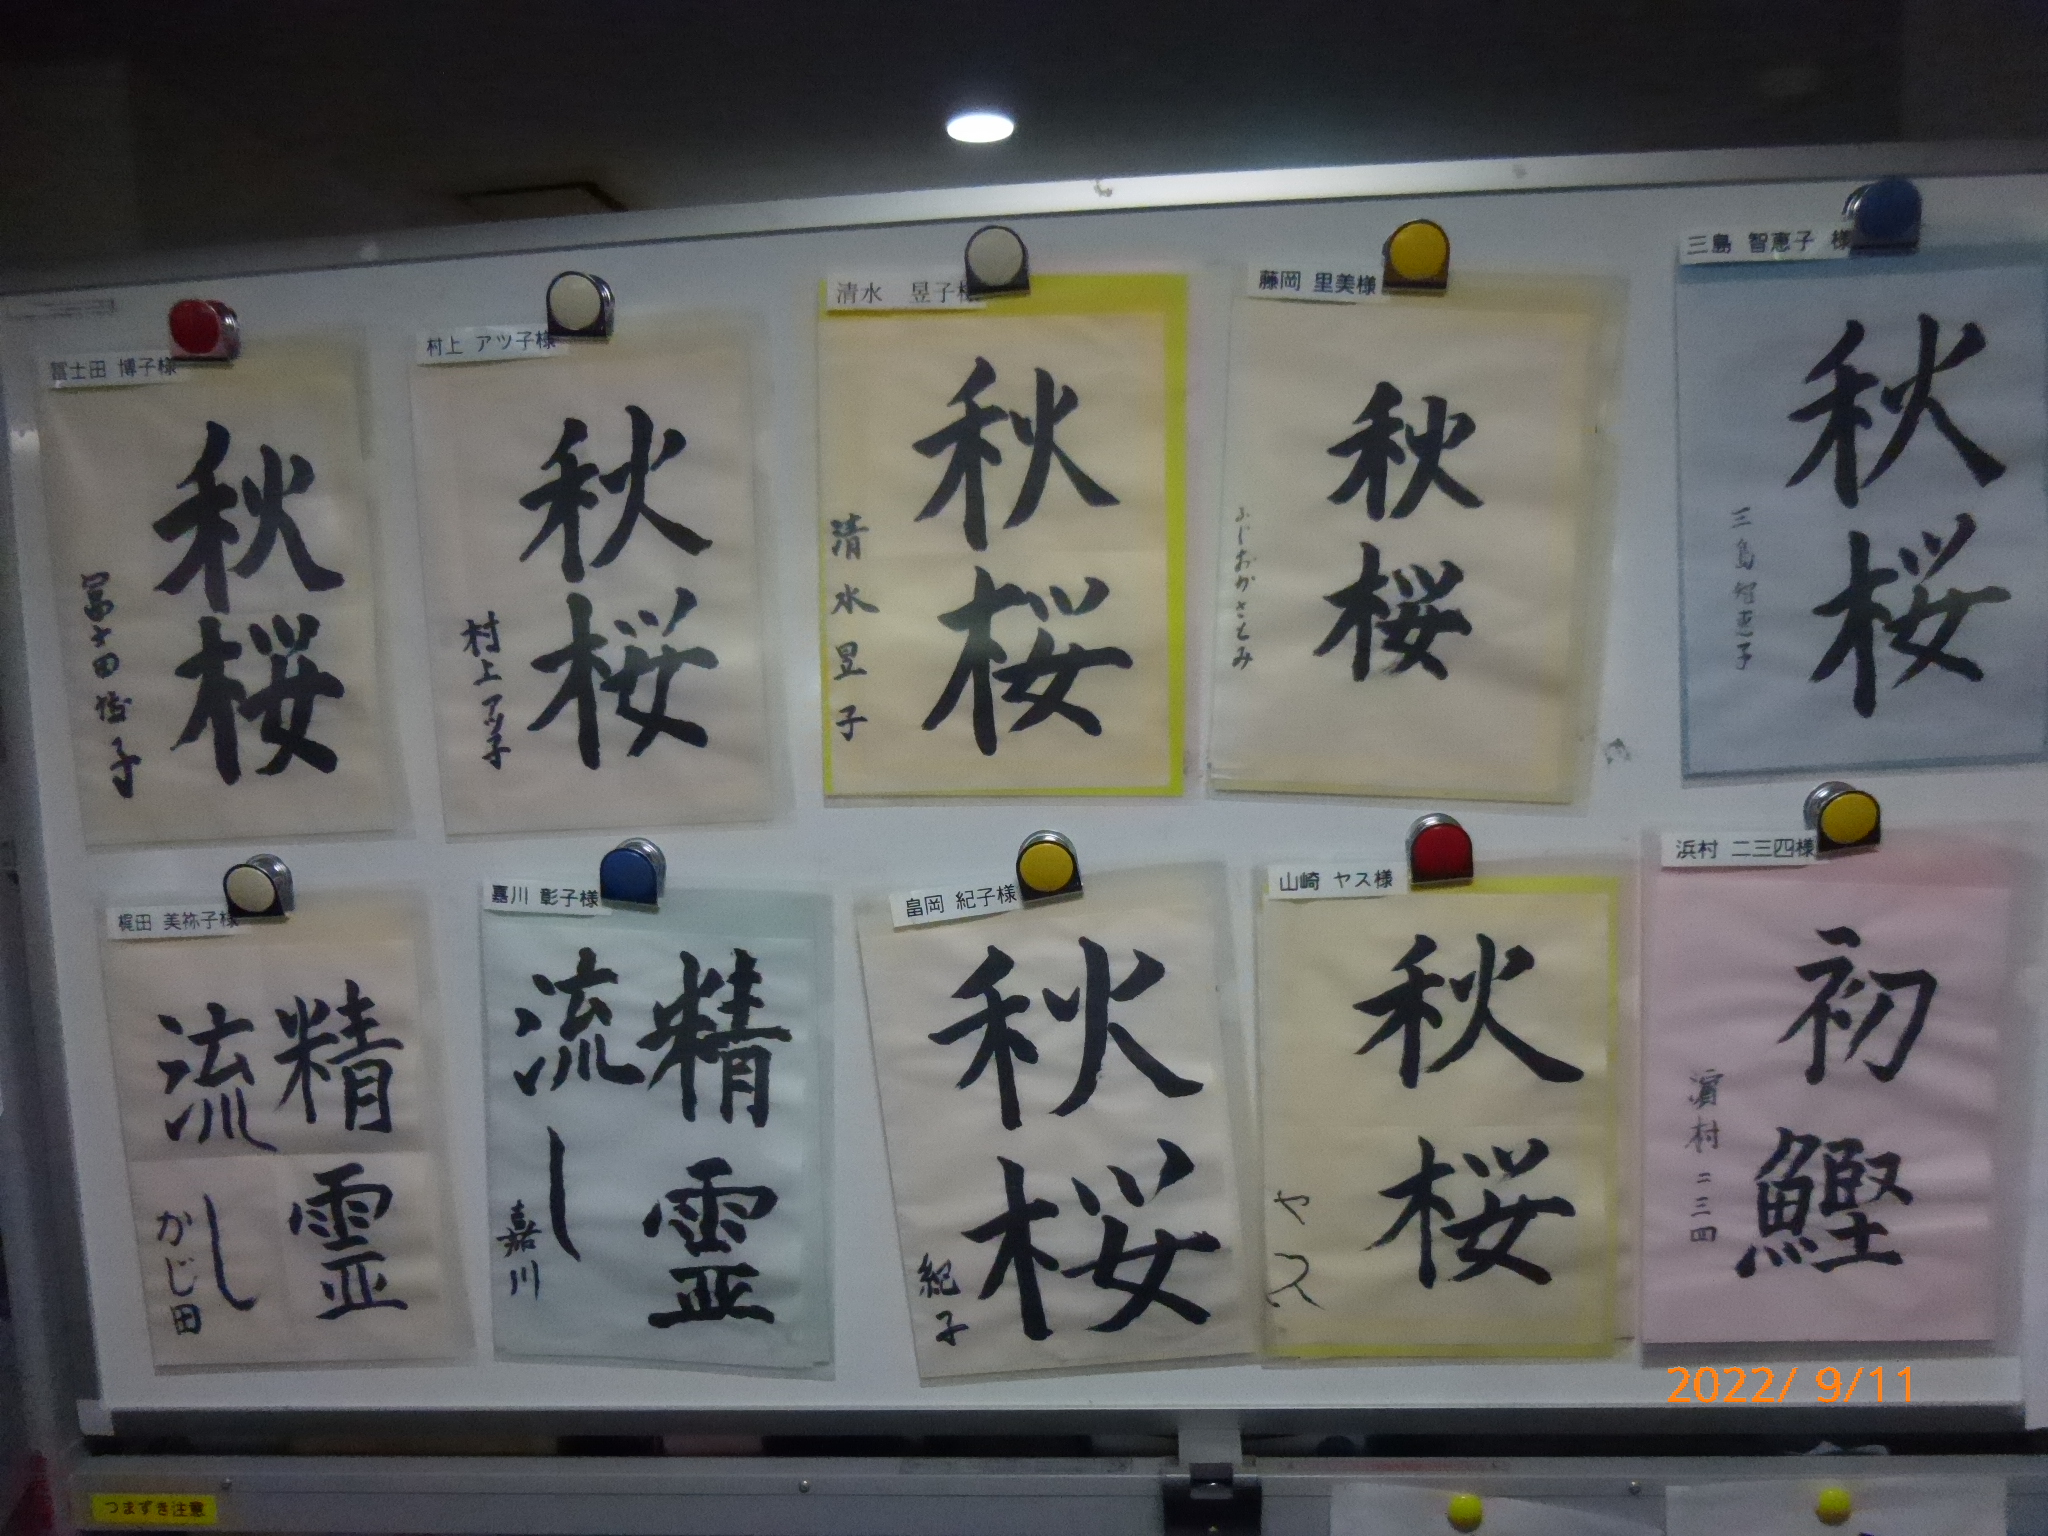 冨士田 博子様
秋桜
冨士田博子
村上 アツ子様
秋桜
村上アツ子
清水 昱子様
秋桜
清水昱子
藤岡 里美様
秋桜
ふじおかさとみ
三島 智恵子 様
秋桜
三島智恵子
梶田 美祢子様
精霊
流し
かじ田
嘉川 彰子様
精霊
流し
嘉川
畠岡 紀子様
秋桜
紀子
山崎 ヤス様
秋桜
ヤス
浜村 二三四様
初鰹
濵村二三四
2022/ 9/11
つまずき注意